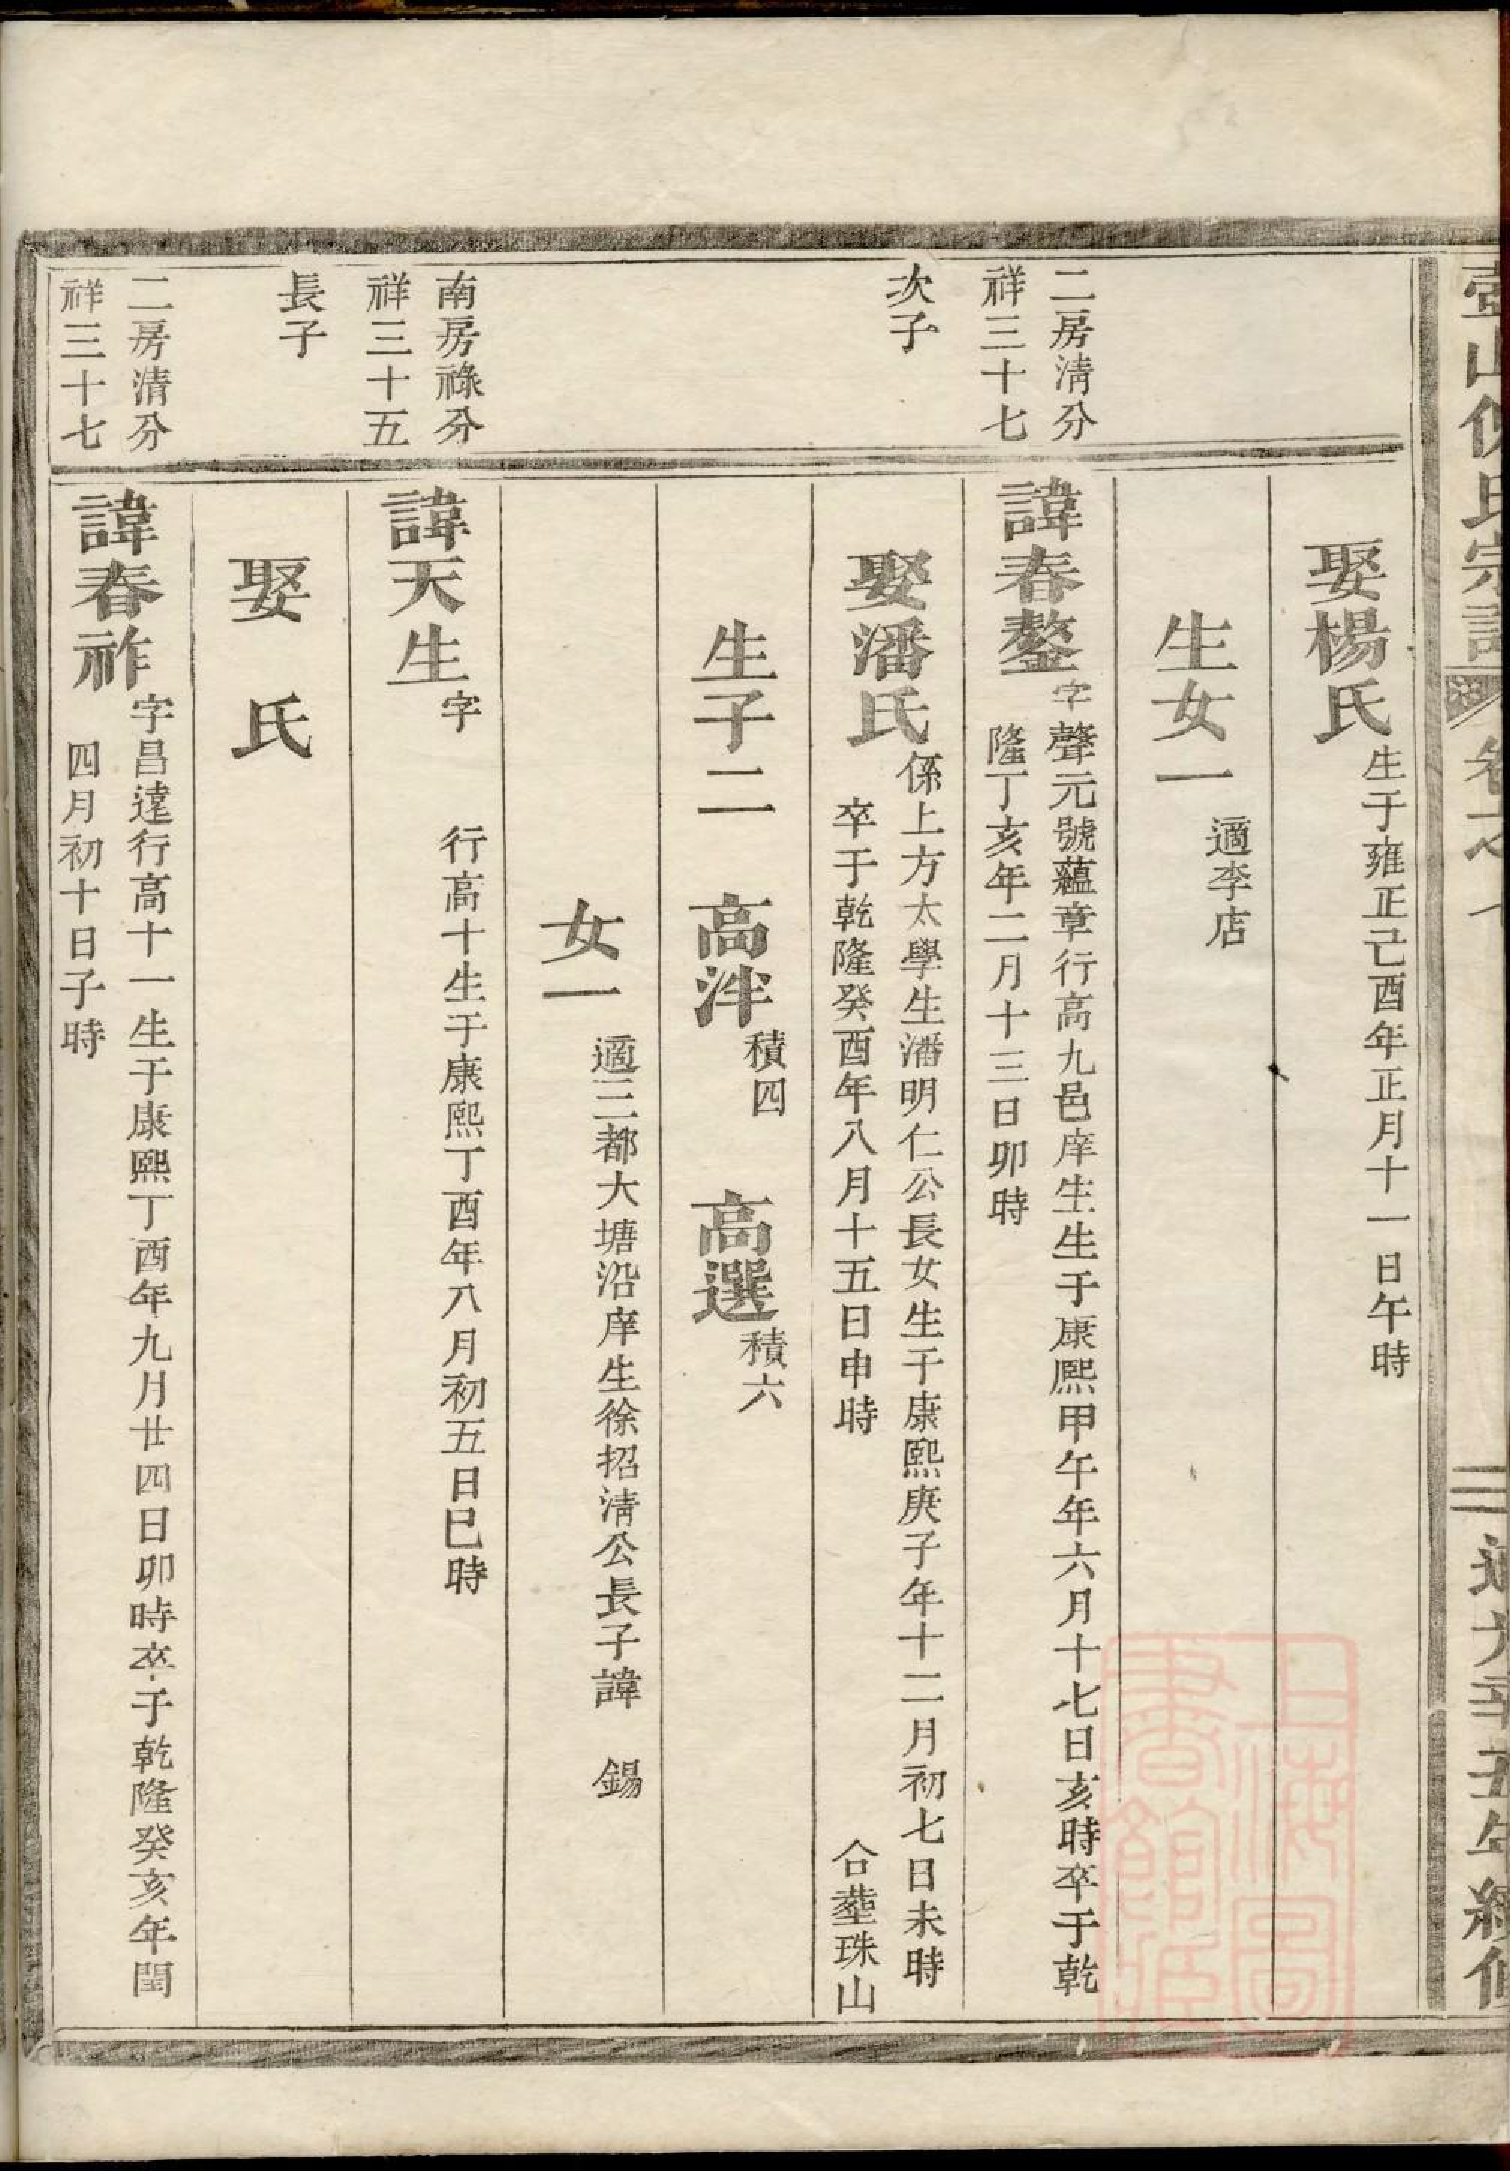 娶楊氏
生于雍正己酉年正月十一日午時
生女一
適李店
二房清分
祥三十七
次子
諱春鏊
字聲元號蘊章行高九邑庠生生于康熙甲午年六月十七日亥時卒于乾
隆丁亥年二月十三日卯時
娶潘氏
係上方太學生潘明仁公長女生于康熙庚子年十二月初七日未時
卒于乾隆癸酉年八月十五日申時 合塟珠山
生子二 高泮 積四 高選 積六
女一
適三都大塘沿庠生徐招清公長子諱 錫
南房祿分
祥三十五
長子
諱天生
字 行高十生于康熙丁酉年八月初五日巳時
娶 氏
二房清分
祥三十七
諱春祚
字昌達行高十一生于康熙丁酉年九月廿四日卯時卒于乾隆癸亥年閏
四月初十日子時
上海圖
書館藏